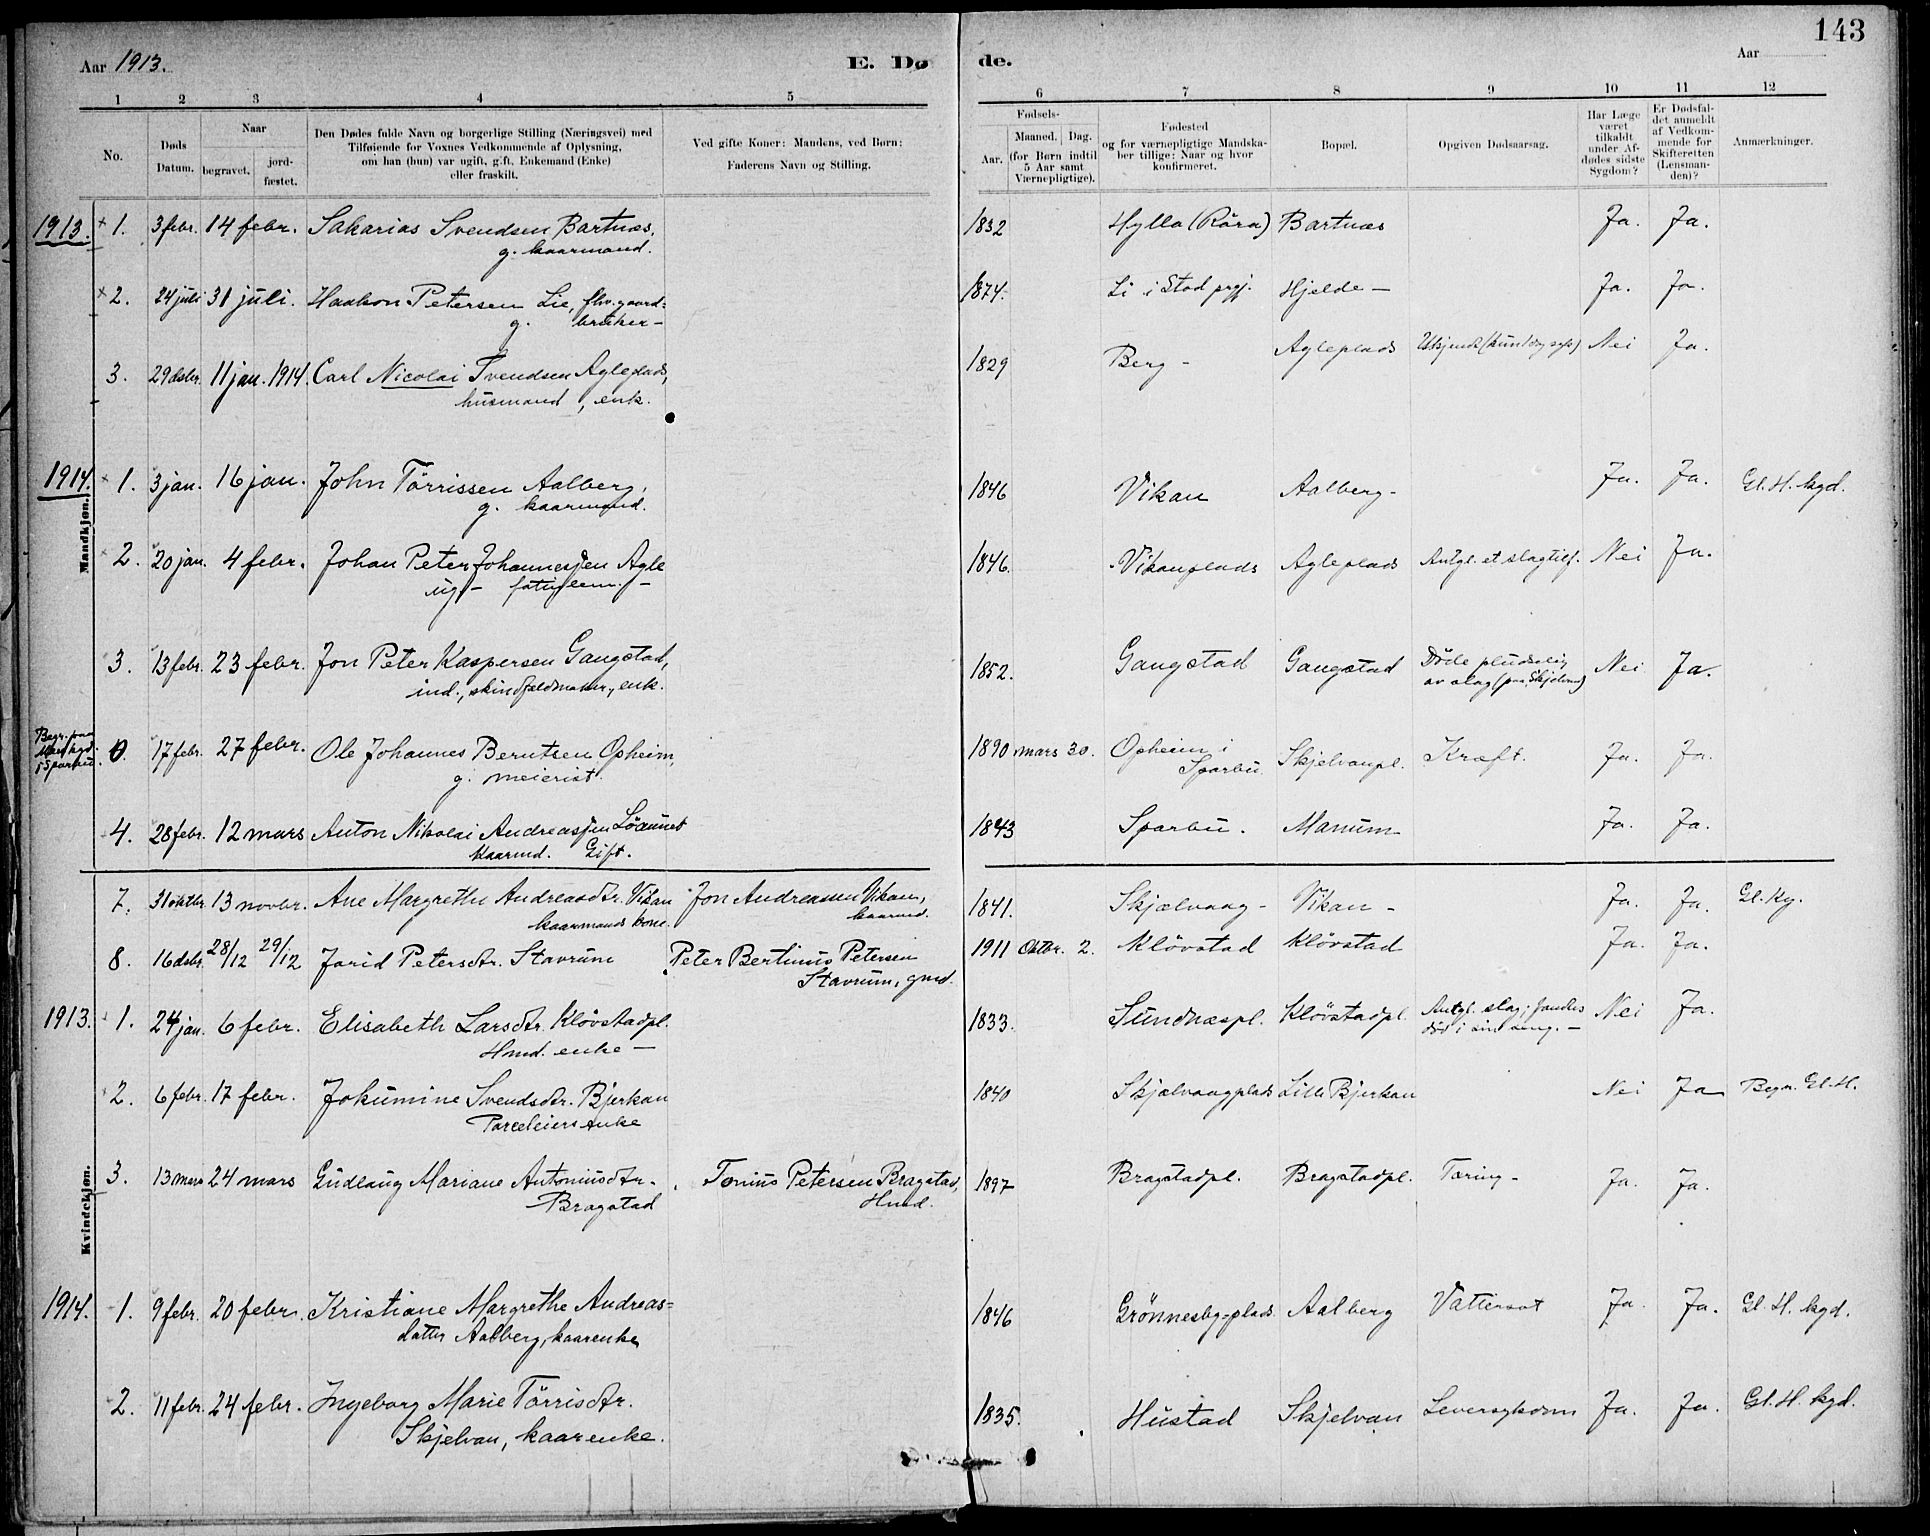 143
Aar 1913.
E. Dø
de.
Aar
1 2 3 4 5 6 7 8 9 10 11 12
No.
Døds Datum.
Naar
begravet.
jord-
fæstet.
Den Dødes fulde Navn og borgerlige Stilling (Næringsvei) med
Tilføiende for Voxnes Vedkommende af Oplysning,
om han (hun) var ugift, gift, Enkemand (Enke)
eller fraskilt.
Ved gifte Koner: Mandens, ved Børn:
Faderens Navn og Stilling.
Fødsels-
Aar.
Maaned. Dag.
(for Børn indtil
5 Aar samt
Værnepligtige).
Fødested
og for værnepligtige Mandska-
ber tillige: Naar og hvor
konfirmeret.
Bopæl.
Opgiven Dødsaarsag.
Har Læge
været
tilkaldt
under Af-
dødes sidste
Sygdom?
Er Dødsfal-
det anmeldt
af Vedkom-
mende for
Skifteretten
(Lensman-
den)?
Anmærkninger.
Mandkjøn.
1913. 1. 3 febr. 14 febr. Sakarias Svendsen Bartnæs, 1832 Hylla (Röra) Bartnæs Ja. Ja.
g. kaarmand.
2. 24 juli 31 juli. Haakon Petersen Lie, fhv. gaard= 1874. Li i Stod prgj. Hjelde – Ja. Ja.
g. bruker –
3. 29 dsbr. 11 jan. 1914. Carl Nicolai Svendsen Agleplads, 1829 Berg – Agleplads Nei Ja.
husmand, enk.
1914. 1. 3 jan. 16 jan. John Törrissen Aalberg, 1846 Vikan Aalberg – Ja. Ja. Gl. H. kgd.
g. kaarmand.
2. 20 jan. 4 febr. Johan Peter Johannessen Agle 1846. Vikanplads Agleplads Antgl. et slagtilf. Nei Ja.
ug –
3. 13 febr. 23 febr. Jon Peter Kaspersen Gangstad, 1852. Gangstad Gangstad Döde pludselig Nei Ja.
ind., skindfældmaker, enk. av slag (paa Skjelvan)
Begr. paa
Mære kgd.
i Sparbu.
0. 17 febr. 27 febr. Ole Johannes Berntsen Opheim, 1890 mars 30. Opheim i Skjelvanpl. Kræft. Ja. Ja.
g. meierist. Sparbu.
4. 28 febr. 12 mars Anton Nikolai Andreassen Löunnet 1843 Sparbu. Manum Ja. Ja.
kaarmd. Gift.
Kvindekjøn.
7. 31 oktbr. 13 novbr. Ane Margrethe Andreasdtr. Vikan Jon Andreassen Vikan, 1841. Skjælvaag – Vikan – Ja. Ja. Gl. kg.
kaarmands kone. kaarmd.
8. 16 dsbr. 28/12 29/12 Jorid Petersdtr. Stavrum Peter Bertinus Petersen 1911 Oktbr. 2. Klövstad Klövstad Ja. Ja.
Stavrum, gmd.
1913. 1. 24 jan. 6 febr. Elisabeth Larsdtr. Klövstadpl. 1833. Sundnæspl. Klövstadpl. Antgl. slag; fandtes Nei Ja.
Hmd. enke – död i sin seng. –
2. 6 febr. 17 febr. Jokumine Svendsdtr. Bjerkan 1840 Skjælvaagplads Lille Bjerkan Nei Ja Begr. Gl. H.
Parceleiers enke
3. 13 mars 24 mars Gudlaug Mariane Antoniusdtr. Tonius Petersen Bragstad, 1897 Bragstadpl. Bragstadpl. Tæring – Ja. Ja.
Bragstad Hmd.
1914. 1. 9 febr. 20 febr. Kristiane Margrethe Andreas= 1846 Grönnesby=plads Aalberg Vattersot Ja. Ja. Gl. H. kgd.
datter Aalberg, kaarenke
2. 11 febr. 24 febr. Ingeborg Marie Törrisdtr. 1835. Hustad Skjelvan Leversykdom Ja. Ja. Gl. H. kgd.
Skjelvan, kaarenke.